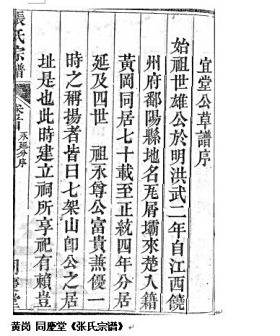 宜堂公草譜序
始祖世雄公於明洪武二年自江西饒
州府鄱陽縣地名瓦屑壩來楚入籍
黃岡同居七十載至正統四年分居
延及四世　祖永尊公富貴兼優一
時之稱揚者皆曰七架山卽公之居
址是也此時建立祠所享祀有賴豈
張氏宗譜
黄岗 同慶堂《張氏宗譜》